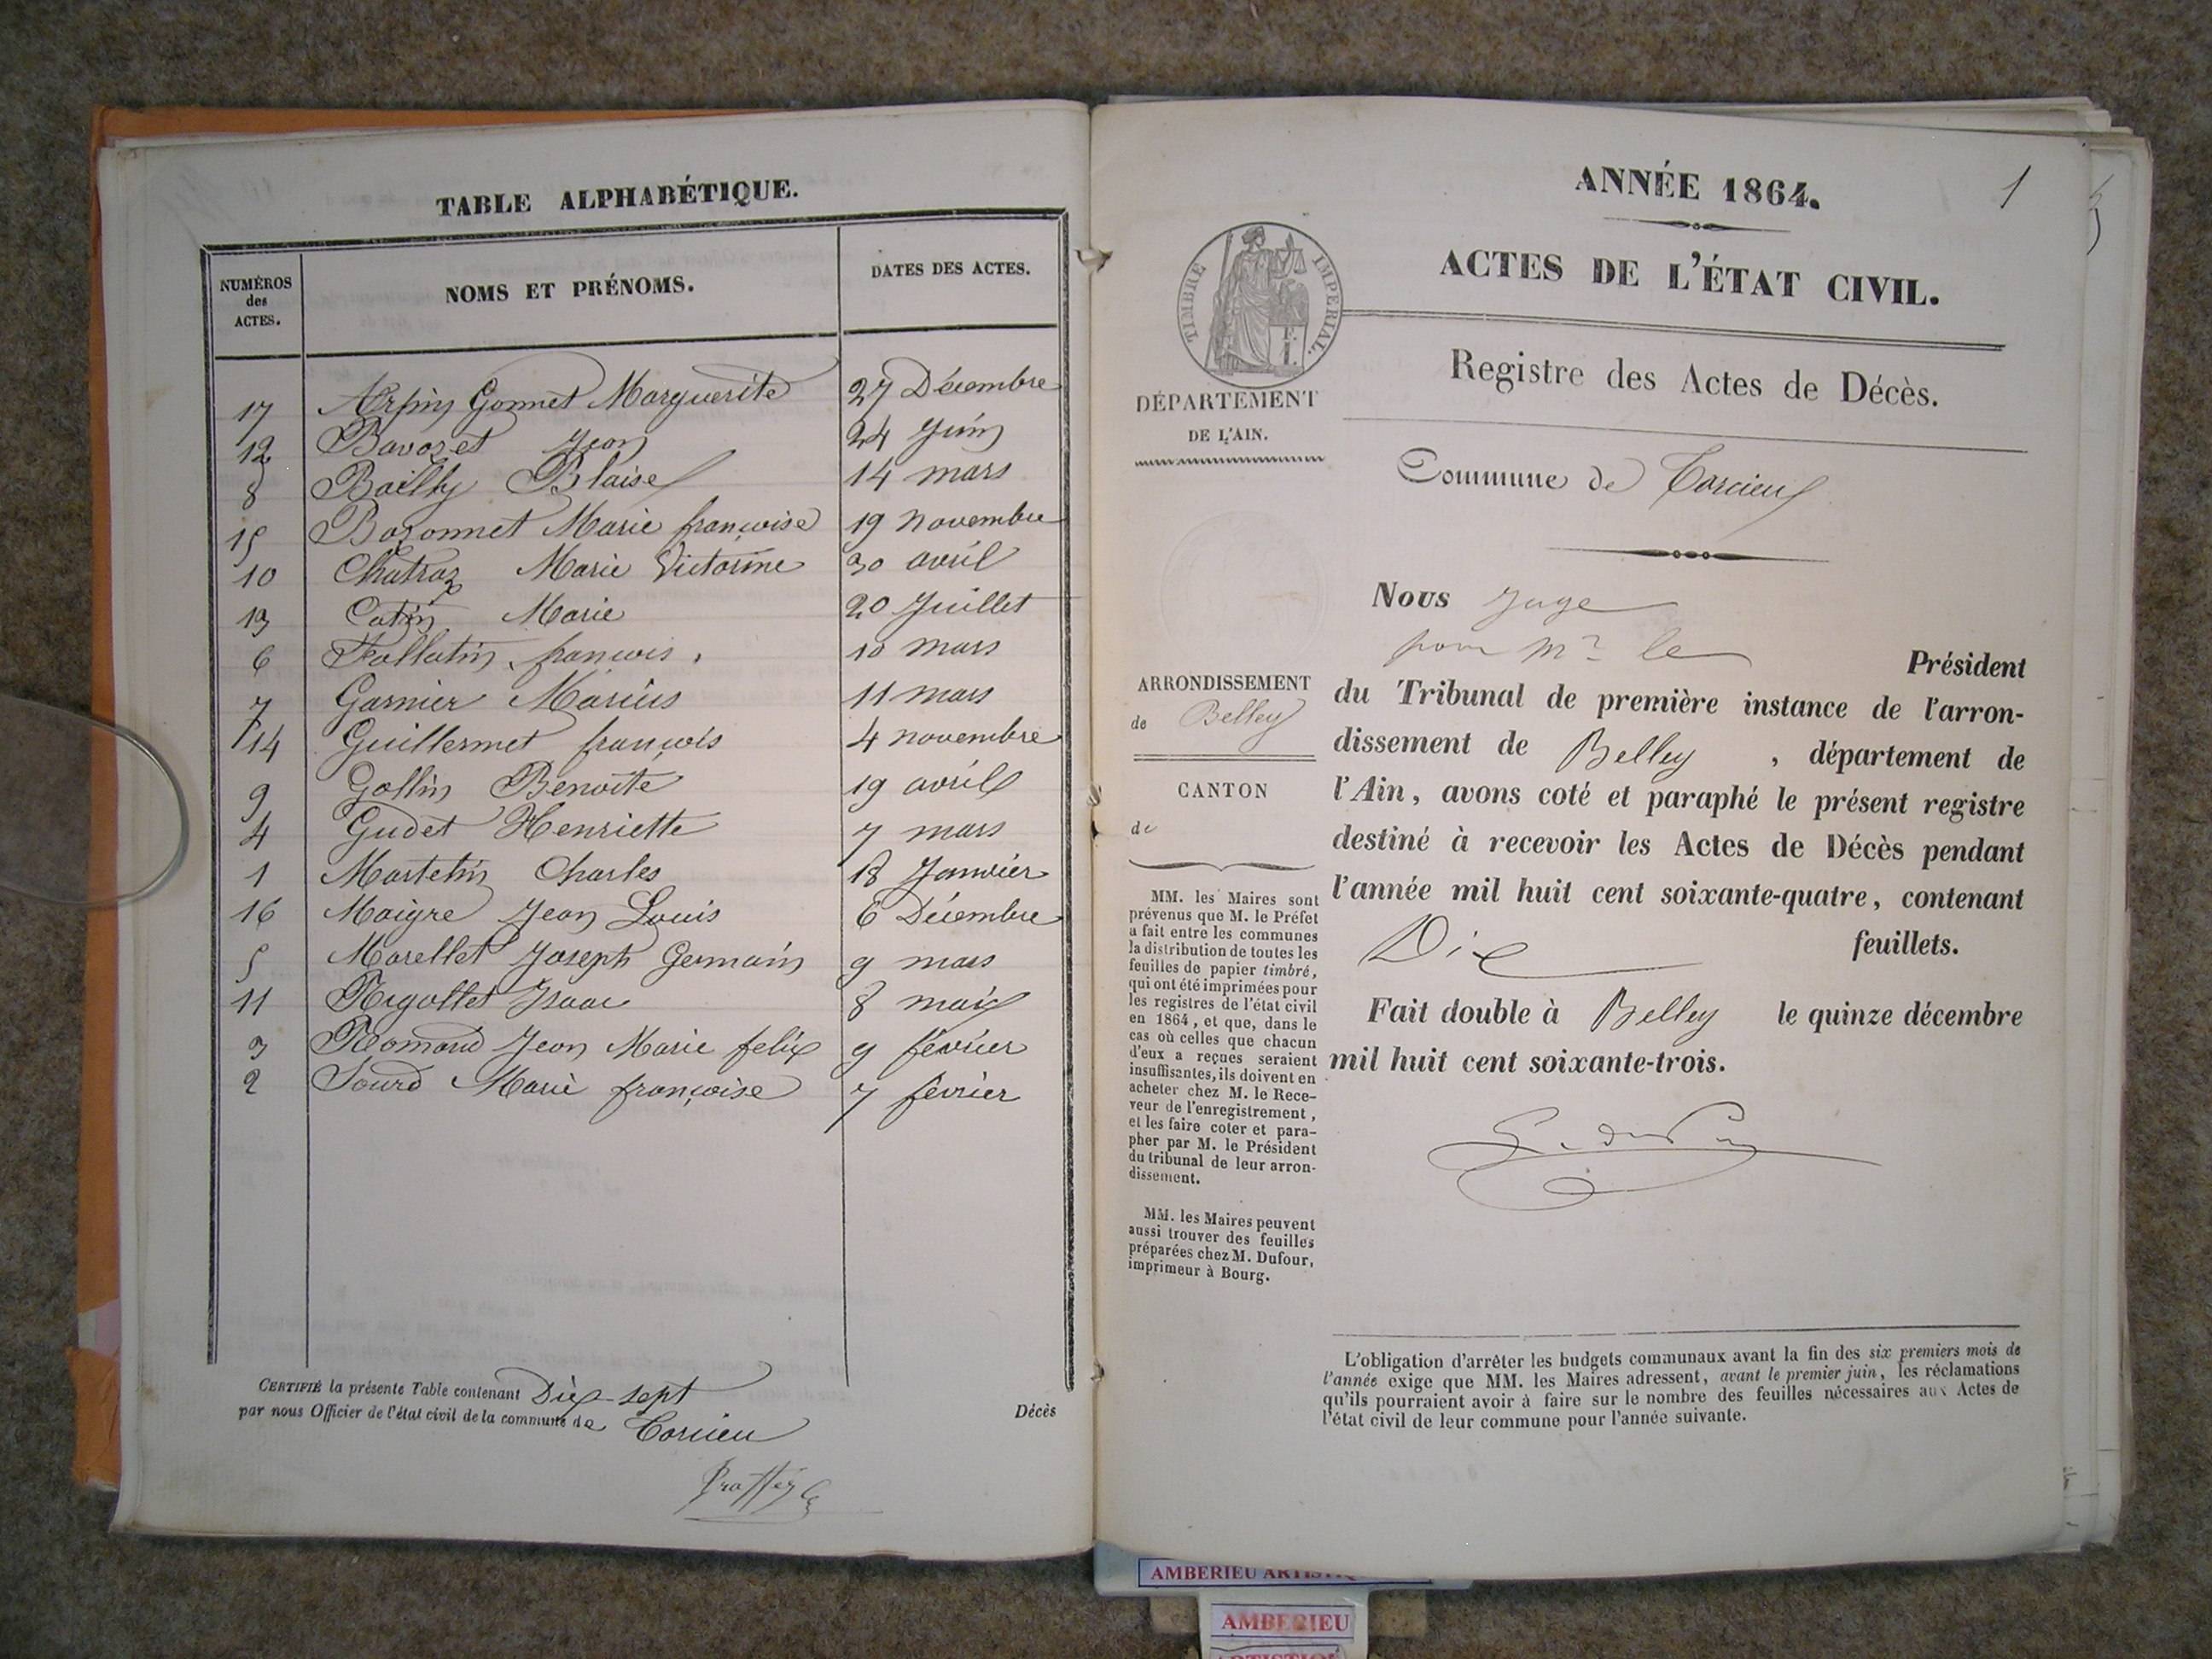 TABLE ALPHABÉTIQUE.
NUMÉROS des ACTES. NOMS ET PRÉNOMS. DATES DES ACTES.
17 Arpin Gonnet Marguerite 27 Décembre
12 Bavozet Jean 24 Juin
8 Bailly Blaise 14 mars
15 Bozonnet Marie françoise 19 novembre
10 Chatraz Marie Victorine 30 avril
13 Catin Marie 20 Juillet
6 Fallatin françois. 10 mars
7 Garnier Marius 11 mars
14 Guillermet françois 4 novembre
9 Gollin Benoite 19 avril
4 Gudet Henriette 7 mars
1 Martelin Charles 18 Janvier
16 Maigre Jean Louis 6 Décembre
5 Morellet Joseph Germain 9 mars
11 Rigollet Isaac 8 mai
3 Romand Jean Marie felix 9 février
2 Sourd Marie françoise 7 février
CERTIFIÉ la présente Table contenant Dix-sept Décès
par nous Officier de l'état civil de la commune de Torcieu
1
ANNÉE 1864.
ACTES DE L'ÉTAT CIVIL.
TIMBRE IMPÉRIAL.
DÉPARTEMENT
DE L'AIN.
Registre des Actes de Décès.
Commune de Torcieu
ARRONDISSEMENT
de Belley
CANTON
de
MM. les Maires sont
prévenus que M. le Préfet
a fait entre les communes
la distribution de toutes les
feuilles de papier timbré,
qui ont été imprimées pour
les registres de l'état civil
en 1864, et que, dans le
cas où celles que chacun
d'eux a reçues seraient
insuffisantes, ils doivent en
acheter chez M. le Rece-
veur de l'enregistrement,
et les faire coter et para-
pher par M. le Président
du tribunal de leur arron-
dissement.
MM. les Maires peuvent
aussi trouver des feuilles
préparées chez M. Dufour,
imprimeur à Bourg.
Nous Juge
pour Mr le Président
du Tribunal de première instance de l'arron-
dissement de Belley, département de
l'Ain, avons coté et paraphé le présent registre
destiné à recevoir les Actes de Décès pendant
l'année mil huit cent soixante-quatre, contenant
Dix feuillets.
Fait double à Belley le quinze décembre
mil huit cent soixante-trois.
L'obligation d'arrêter les budgets communaux avant la fin des six premiers mois de
l'année exige que MM. les Maires adressent, avant le premier juin, les réclamations
qu'ils pourraient avoir à faire sur le nombre des feuilles nécessaires aux Actes de
l'état civil de leur commune pour l'année suivante.
AMBERIEU
AMBERIEU